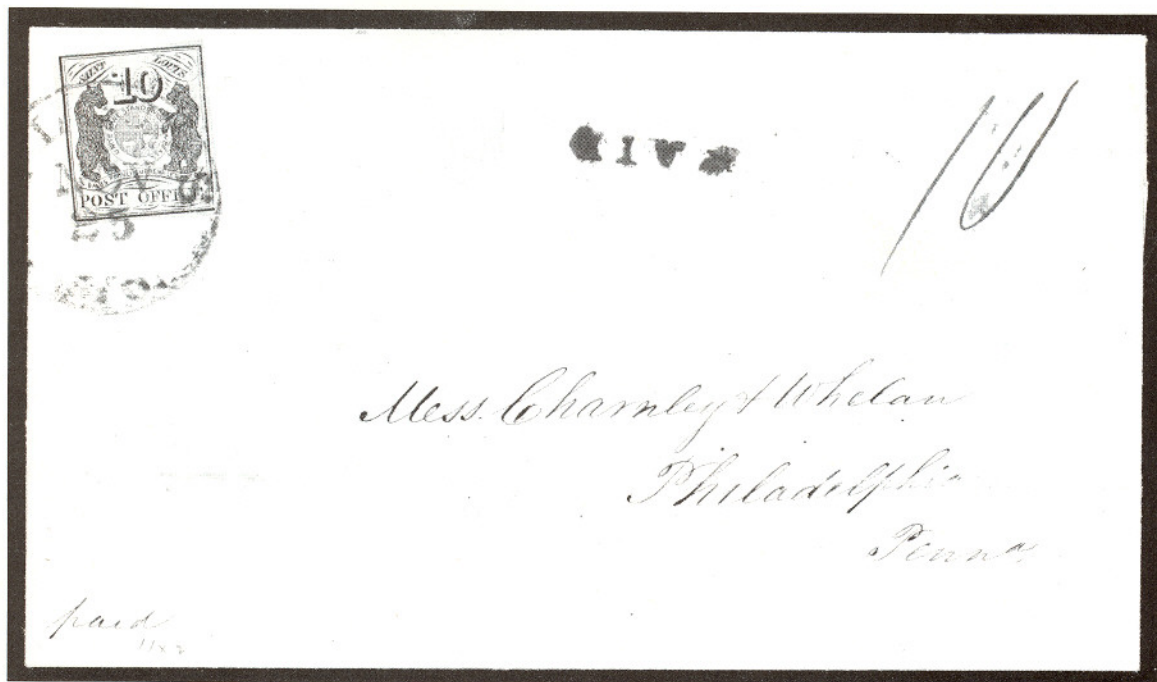 SAINT LOUIS
10
POST OFFICE
25
PAID
10
Mess. Charnley & Whelan
Philadelphia
Penna
paid
11X2